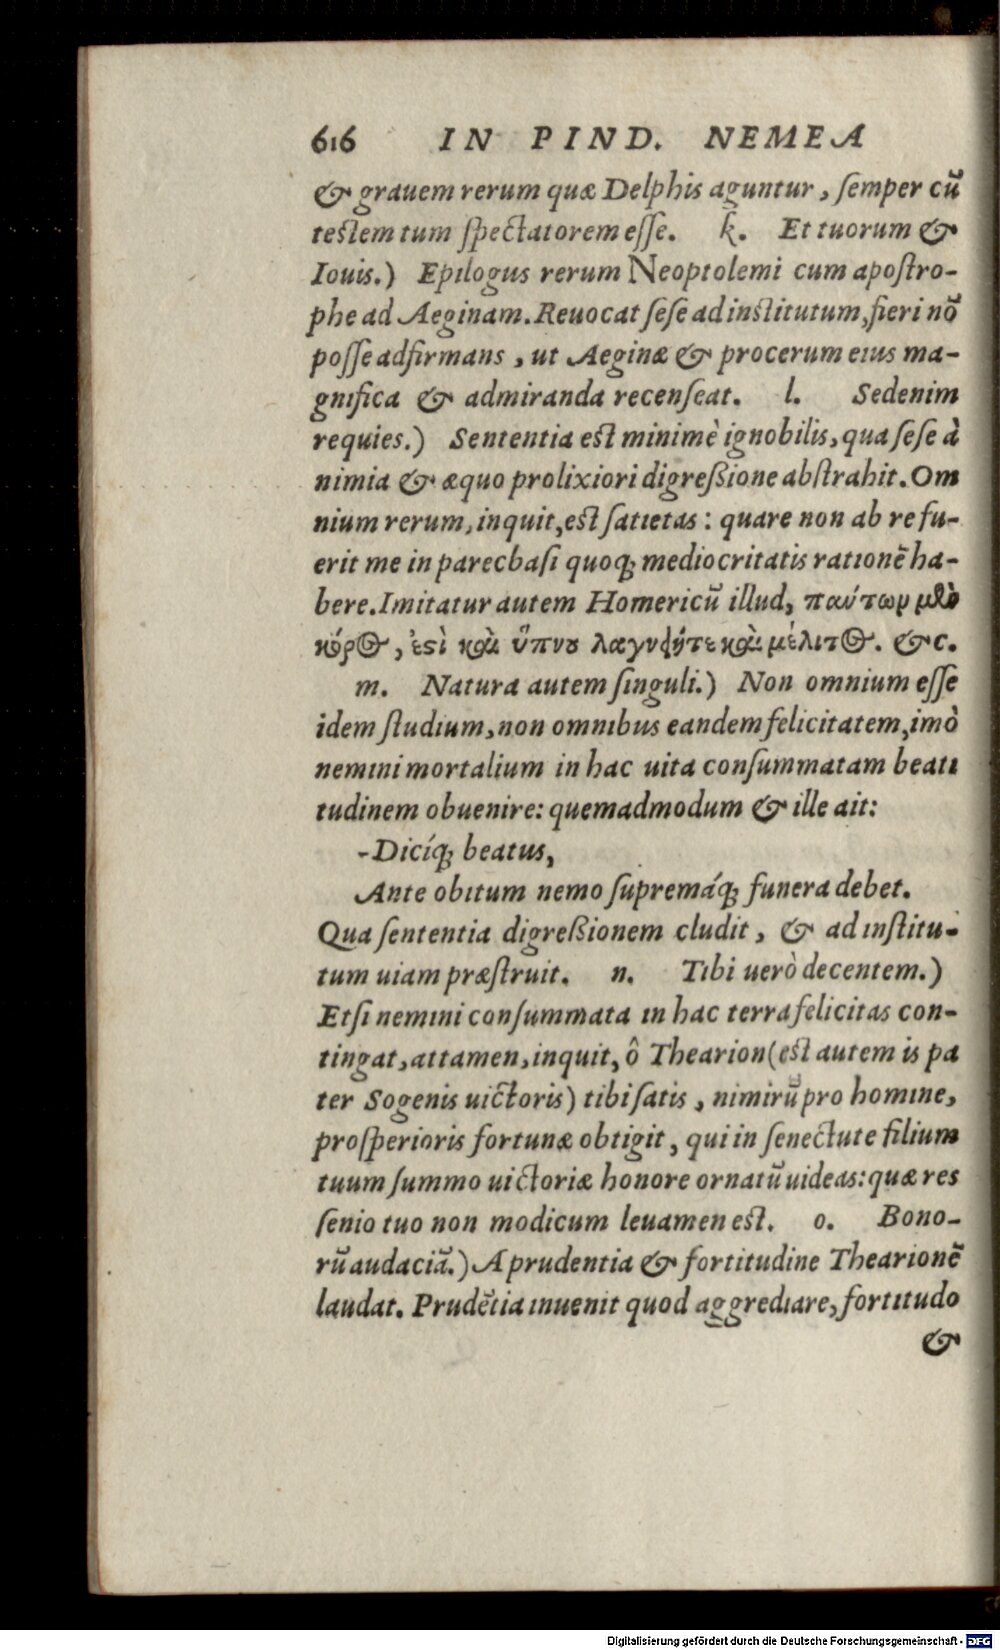 616 IN PIND. NEMEA
& grauem rerum quæ Delphis aguntur, semper cū
testem tum spectatorem esse. k. Et tuorum &
Iouis.) Epilogus rerum Neoptolemi cum apostro-
phe ad Aeginam. Reuocat sese ad institutum, fieri nō
posse adfirmans, ut Aeginæ & procerum eius ma-
gnifica & admiranda recenseat. l. Sedenim
requies.) Sententia est minimè ignobilis, qua sese à
nimia & æquo prolixiori digreßione abstrahit. Om
nium rerum, inquit, est satietas: quare non ab re fu-
erit me in parecbasi quoq; mediocritatis rationē ha-
bere. Imitatur autem Homericū illud, πάντων μὲν
κόρος, ἐστὶ καὶ ὕπνου καὶ μέλιτος. &c.
m. Natura autem singuli.) Non omnium esse
idem studium, non omnibus eandem felicitatem, imò
nemini mortalium in hac uita consummatam beati
tudinem obuenire: quemadmodum & ille ait:
-Dicíq; beatus,
Ante obitum nemo supremáq; funera debet.
Qua sententia digreßionem cludit, & ad institu-
tum uiam præstruit. n. Tibi uerò decentem.)
Etsi nemini consummata in hac terra felicitas con-
tingat, attamen, inquit, ô Thearion (est autem is pa
ter Sogenis uictoris) tibi satis, nimirū pro homine,
prosperioris fortunæ obtigit, qui in senectute filium
tuum summo uictoriæ honore ornatū uideas: quæ res
senio tuo non modicum leuamen est. o. Bono-
rū audaciā.) A prudentia & fortitudine Thearionē
laudat. Prudētia inuenit quod aggrediare, fortitudo
&
Digitalisierung gefördert durch die Deutsche Forschungsgemeinschaft - DFG